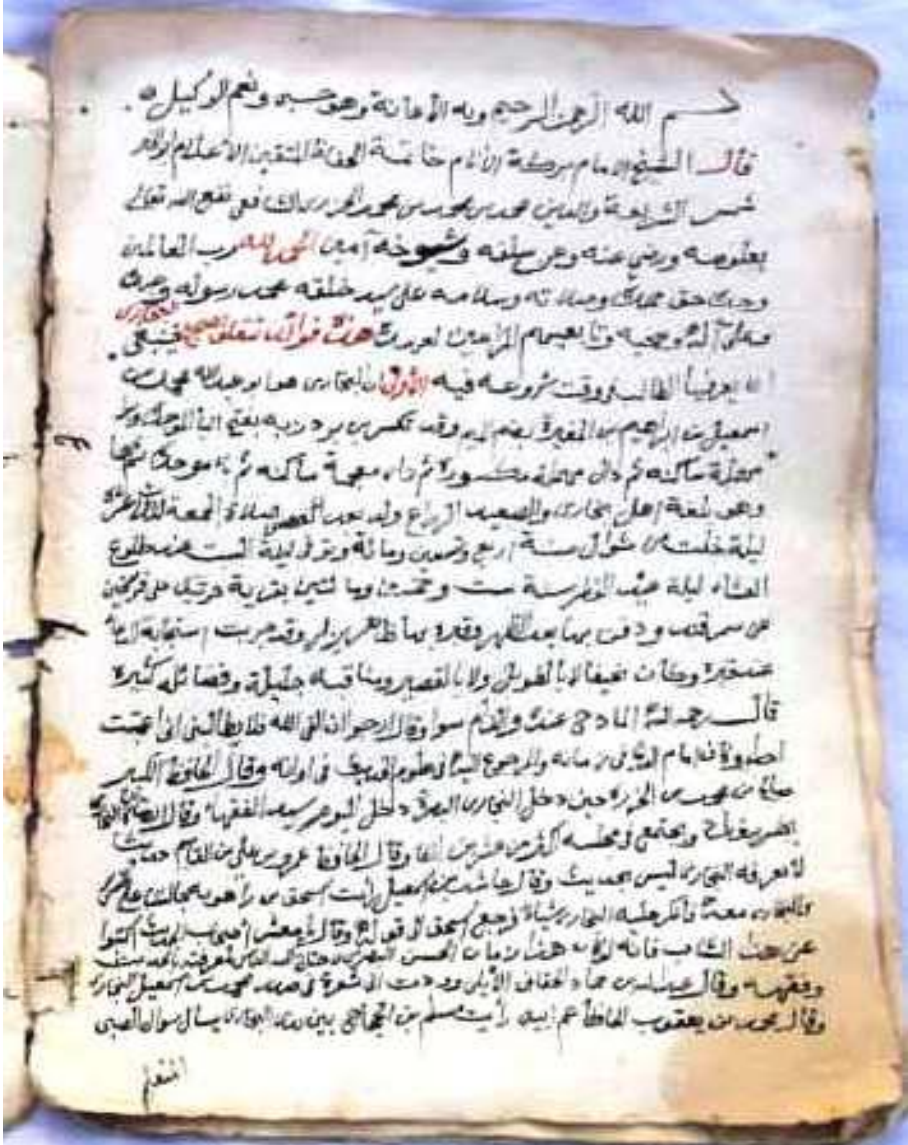 بسم الله الرحمن الرحيم وبه الاعانة وهو حسبي ونعم الوكيل
قال الشيخ الامام بركة الأنام خاتمة الحفاظ المتقين الاعلام
شمس الشريعة والدين محمد بن محمد بن محمد الجزري الشافعي نفع الله تعالى
بعلومه ورضي عنه وعن سلفه وشيوخه آمين الحمد لله رب العالمين
حق وصلاته وسلامه على سيد خلقه محمد رسوله
وعلى آله وصحبه وتابعيهم هذه فوائد تتعلق بصحيح البخاري فينبغي
ان يعرفها الطالب وقت شروعه فيه الأولى ان البخاري هو ابو عبد الله محمد بن
اسمعيل بن ابراهيم بن المغيرة بضم الميم وقد تكسر بن بردزبه بفتح الباء الموحدة
مهملة ساكنة ثم دال مهملة مكسورة ثم زاء معجمة ساكنة ثم باء موحدة ثم هاء
وهو بلغة اهل بخارى الزراع ولد بعد صلاة الجمعة لثلاث عشرة
ليلة خلت من شوال سنة اربع وتسعين ومائة وتوفي ليلة السبت عند طلوع
العشاء ليلة عيد الفطر سنة ست وخمسين ومائتين بقرية خرتنك على فرسخين
من سمرقند ودفن بها بعد الظهر وقبره بها ظاهر يزار وقد جربت استجابة الدعاء
عند قبره وكان نحيفا لا بالطويل ولا بالقصير ومناقبه جليلة وفضائله كثيرة
قال رحمه الله المادح عندي والذام سوا وقال ارجو ان القى الله فلا يطالبني اني اغتبت
احدا وهو امام في زمانه والمرجوع اليه في علوم الحديث في اوانه وقال الحافظ الكبير
صالح بن محمد حين دخل البخاري البصرة دخل اليوم سيد الفقهاء وقال
ويجتمع في مجلسه اكثر من عشرين الفا وقال الحافظ عمرو بن علي بن القاسم حديث
لا يعرفه البخاري ليس بحديث وقال حاشد بن اسمعيل رأيت اسحق بن راهويه جالسا
والبخاري معه فانكر عليه البخاري شيئا فرجع اسحق الى قوله وقال يا معشر اصحاب الحديث اكتبوا
عن هذا الشاب فانه لو كان هذا زمان الحسن البصري لاحتاج اليه الناس لمعرفته بالحديث
وفقهه وقال عبد الله بن حماد الأملي وددت اني شعرة في صدر محمد بن اسمعيل البخاري
وقال محمد بن يعقوب الحافظ عن ابيه رأيت مسلم بن الحجاج بين يدي البخاري يسأل سوال الصبي
المتعلم